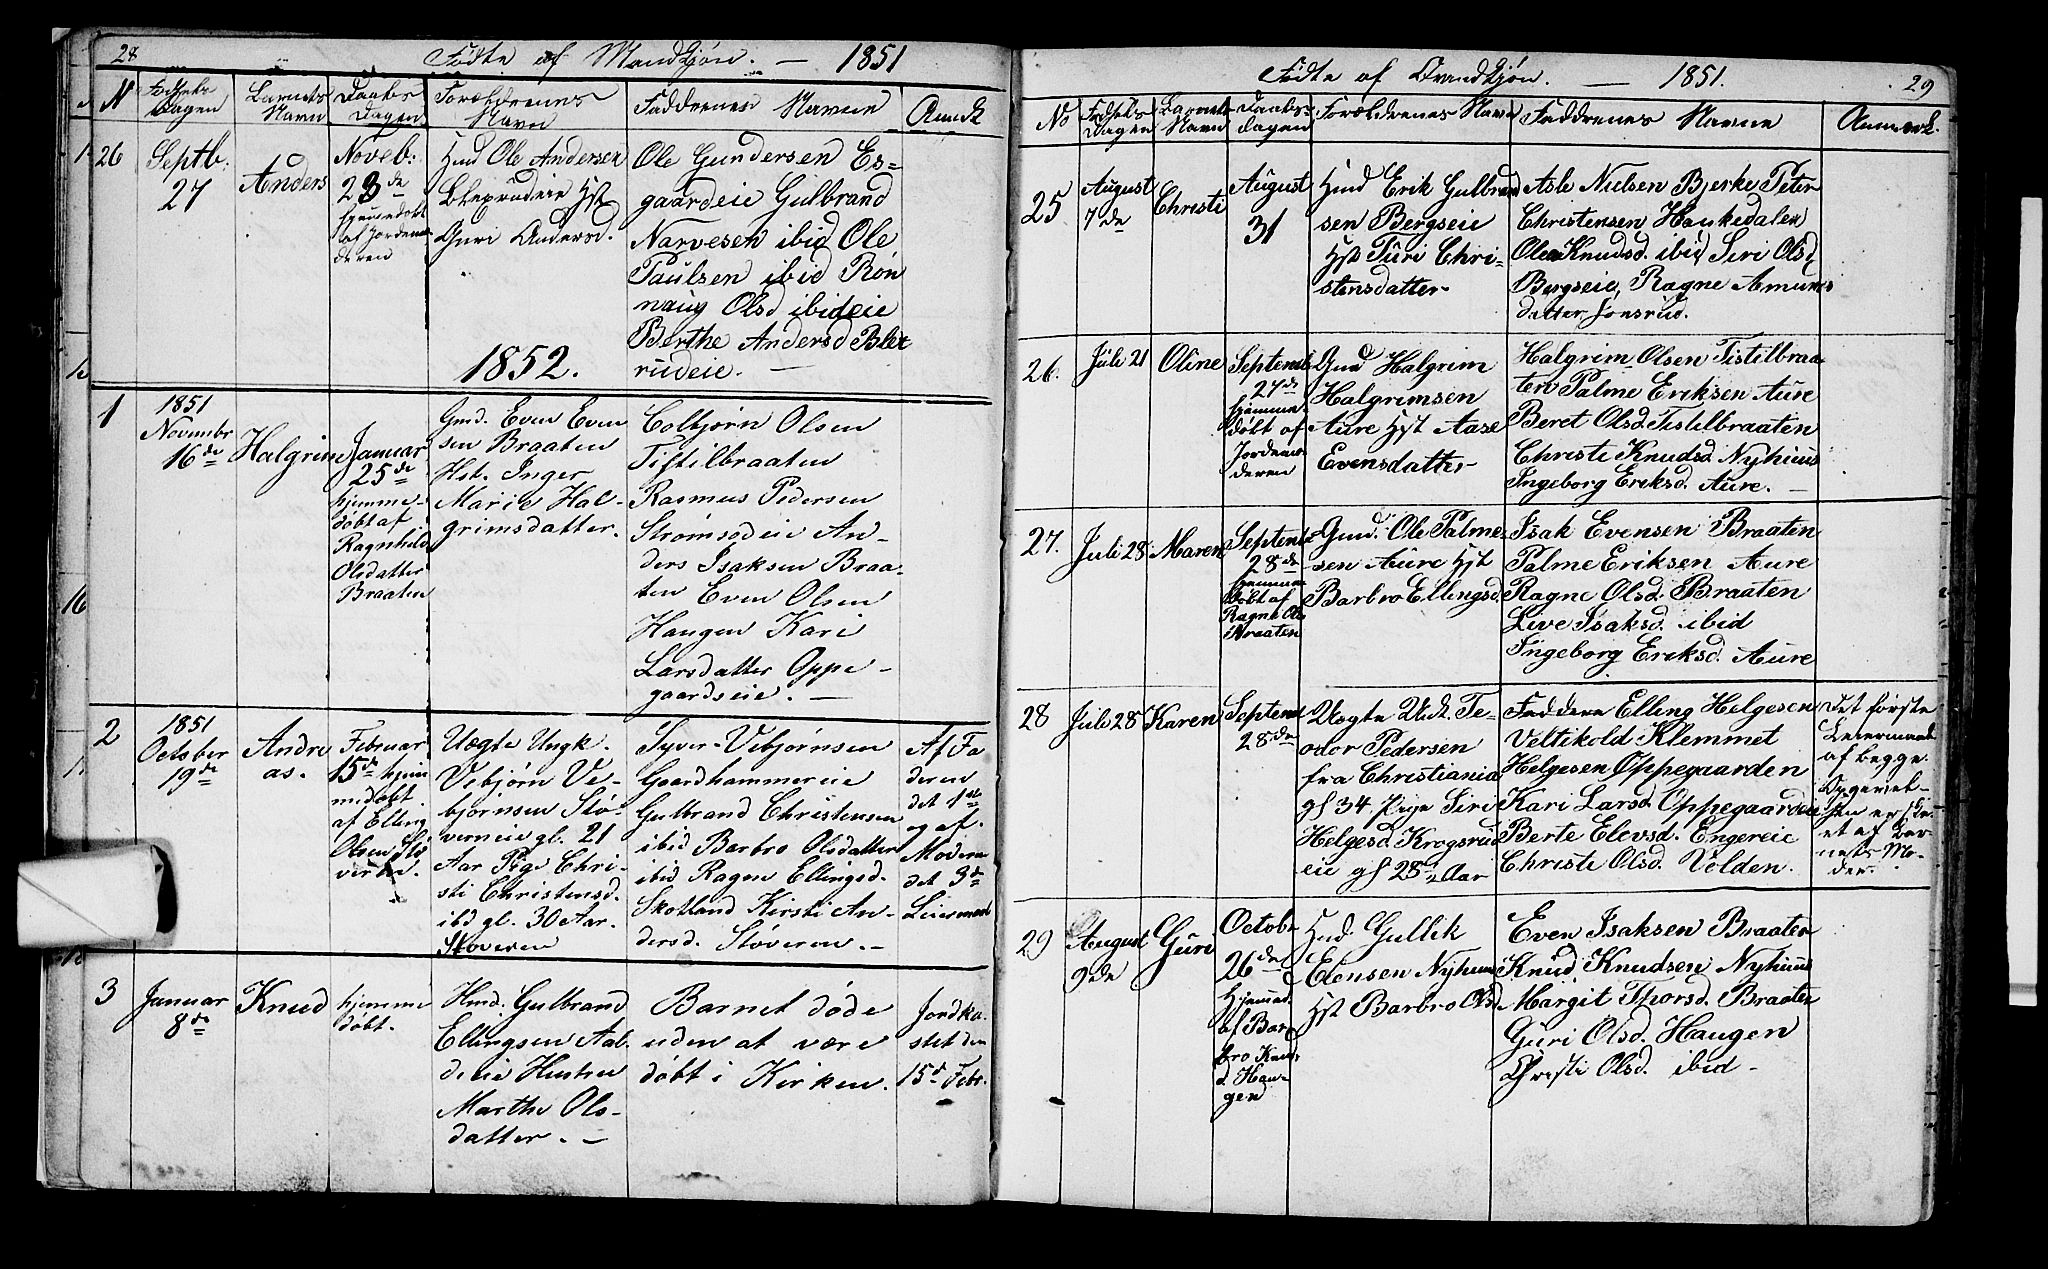 28
Födte af Mandkjön. — 1851
N
Födsels
Dagen
Barnets
Navn
Daabs
Dagen
Forældrenes
Navn
Faddernes Navne
Anmk
26
Septb:
27
Anders
Noveb:
23de
hjemedøbt
af Jordemo
deren
Hmd Ole Andersen
Blexrudeie Hst
Guri Andersd.
Ole Gundersen Es=
gaardeie Gulbrand
Narvesen ibid Ole
Paulsen ibid Rön
naug Olsd ibideie
Berthe Andersd Blex
rudeie. —
1852.
1
1851
Novembr
16de
Halgrim
Januar
25de
hjemme-
döbt af
Ragnhild
Olsdatter
Braaten
Gmd. Even Even
sen Braaten
Hst. Inger
Marie Hal-
grimsdatter.
Colbjørn Olsen
Tistilbraaten
Rasmus Pedersen
Strømsodeie An-
ders Isaksen Braa-
ten Even Olsen
Haugen Kari
Larsdatter Oppe-
gaardseie. —
2
1851
October
19de
Andre
as.
Februar
15de hjem
medøbt
af Elling
Olsen Stö
veren.
Uægte Ungk.
Vebjörn Ve-
bjornsen Stö-
verneie gl. 21
Aar Pige Chri-
sti Christensd.
ibd gl. 30 Aar.
Stöveren
Syver Vebjørnsen
Gaardhammereie
Gulbrand Christensen
ibid Barbro Olsdatter
ibid Ragne Ellingsd.
Skotland Kirsti An-
dersd. Støveren. —
Af Fa
deren
det 1ste
og af
Moderen
det 3de
Leiermaal
3
Januar
8de
Knud
hjemme
döbt.
Hmd. Gulbrand
Ellingsen Aal-
deeie Hustru
Marthe Ols-
datter. —
Barnet döde
uden at være
döbt i Kirken.
Jordka-
stet den
15de Febr.
Födte af Qvindkjön. — 1851.
29
No
Födsels
Dagen
Barnets
Navn
Daabs-
dagen
Forældrenes Navn
Faddrenes Navne
Anmerk.
25
August
7de
Christi
August
31
Hmd Erik Gulbrand
sen Bergseie
Hst Turi Chri=
stensdatter
Asle Nielsen Bjerke Peter
Christensen Haukedalen
Olea Knudsd. ibid Siri Olsd
Bergseie, Ragne Amunds
datter Jonsrud.
26.
Juli 21
Oline
Septemb
27de
hjemme-
döbt af
Jordemo-
deren
Gmd Halgrim
Halgrimsen
Aure Hst Aase
Evensdatter
Halgrim Olsen Tistilbraa-
ten Palme Eriksen Aure
Beret Olsd Tistilbraaten
Christi Knudsd Nyhuus
Ingeborg Eriksd. Aure. —
27.
Juli 28
Maren
Septemb
28de
hjemme
döbt af
Ragne Ols
Braaten
Gmd. Ole Palme-
sen Aure Hst
Barbro Ellingsd.
Isak Evensen Braaten
Palme Eriksen Aure
Ragne Olsd. Braaten
Live Isaksd. ibid
Ingeborg Eriksd. Aure
28
Juli 28
Karen
Septemb
28de
Uægte Udt. Te-
odor Pedersen
fra Christiania
gl 34 Pige Siri
Helgesd. Krogsrud
eie gl 28 Aar
Faddere Elling Helgesen
Veltikold Klemmet
Helgesen Oppegaarden
Kari Larsd Oppegaarden
Berte Elevsd. Engereie
Christi Olsd. Volden.
Det förste
Leiermaal
af begge.
Opgivel-
sen er ske-
et af Bar-
nets Mo-
der.
29
August
9de
Guri
Octobr
26de
Hjemmed.
af Bar
bro Knud
d. Hau-
gen
Hmd. Gullik
Evensen Nyhuus
Hst Barbro Olsd
Even Isaksen Braaten
Knud Knudsen Nyhuus
Margit Thorsd. Braaten
Guri Olsd. Haugen
Christi Olsd. ibid —